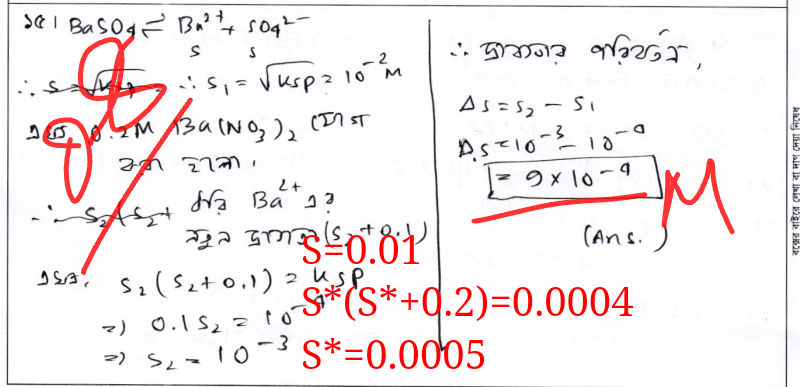 ১৫। BaSO4 ⇌ Ba2+ + SO42-
S S
∴ S = √Ksp ∴ S1 = √Ksp = 10-2 M
এখন, 0.2M Ba(NO3)2 যোগ
করা হলো
∴ S2(S2+ ধরি Ba2+ এর
নতুন দ্রাব্যতা (S2+0.1)
এখন, S2(S2+0.1) = Ksp
=) 0.1S2 = 10-4
=) S2 = 10-3
∴ দ্রাব্যতার পরিবর্তন,
ΔS = S2 - S1
ΔS = 10-3 - 10-4
= 9 × 10-4 M
(Ans.)
S=0.01
S*(S*+0.2)=0.0004
S*=0.0005
বক্সের বাইরে লেখা বা দাগ দেয়া নিষেধ